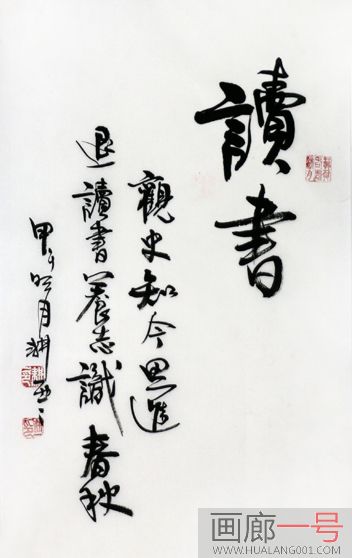 讀書
觀史知今思進
退讀書養志識春秋
甲午
月耕
画廊一号
WWW.HUALANG001.COM